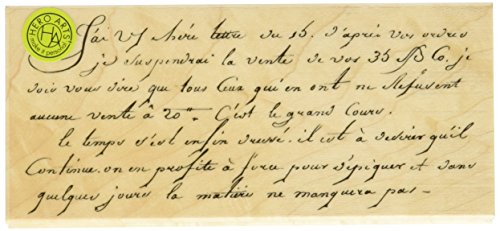 HERO ARTS
make it personal
J'ai V. chère lettre du 15. d'après vos ordres
je suspendrai la vente de vos 35 je
dois vous dire que tous Ceux qui en ont ne Refusent
aucune vente à 20". C'est le grand Cours.
le temps s'est enfin dressé. il est à desirer qu'il
Continue. on en profite à force pour dépiquer et dans
quelques jours la matière ne manquera pas -